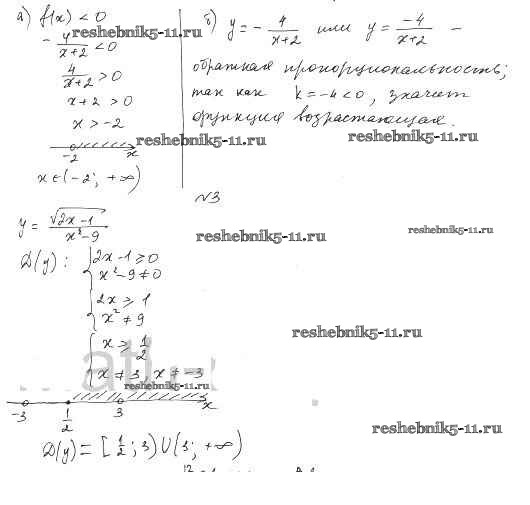 а) f(x) < 0
- 4/(x+2) < 0
4/(x+2) > 0
x+2 > 0
x > -2
-2 x
x ∈ (-2; +∞)
б) y = - 4/(x+2) или y = -4/(x+2) -
обратная пропорциональность;
так как k = -4 < 0, значит
функция возрастающая.
reshebnik5-11.ru
reshebnik5-11.ru
reshebnik5-11.ru
№3
y = √(2x-1)/(x²-9)
reshebnik5-11.ru
reshebnik5-11.ru
D(y): { 2x-1 ≥ 0
x²-9 ≠ 0
{ 2x ≥ 1
x² ≠ 9
reshebnik5-11.ru
{ x ≥ 1/2
x ≠ 3, x ≠ -3
reshebnik5-11.ru
-3 1/2 3 x
reshebnik5-11.ru
D(y) = [1/2; 3) ∪ (3; +∞)